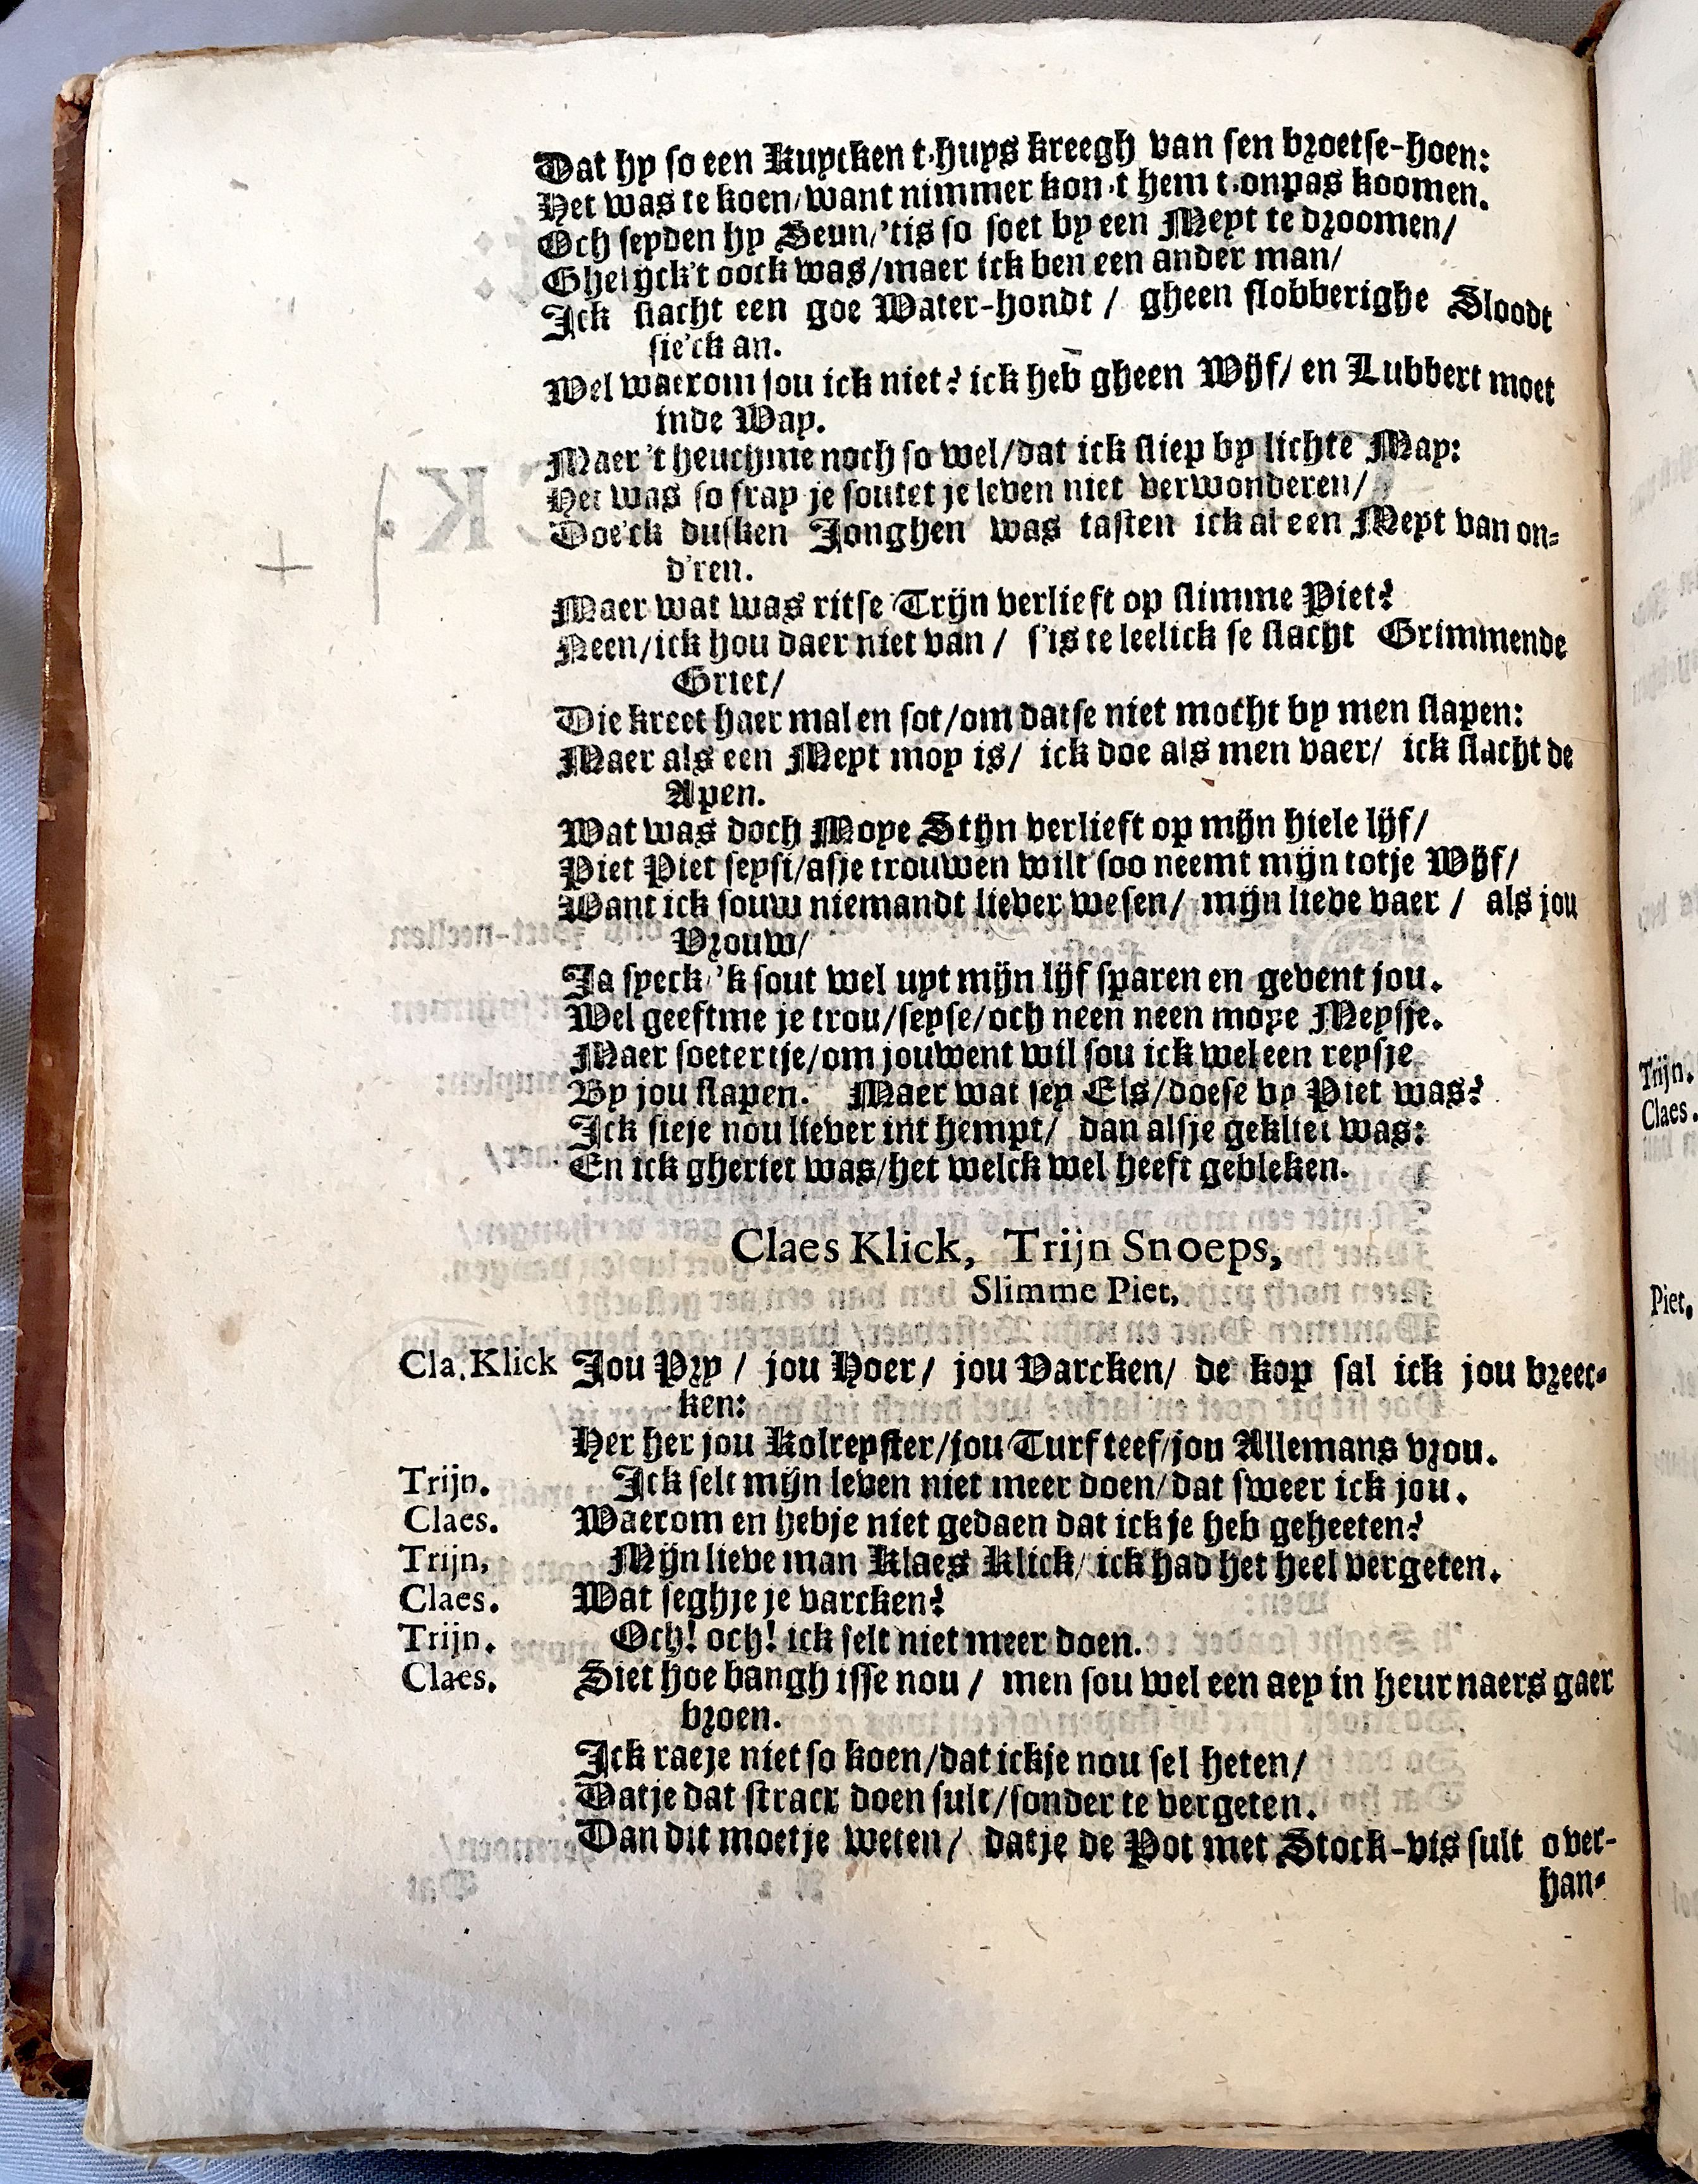 Dat hy so een Kuycken t'huys kreegh van sen broetse-hoen:
Het was te koen/want nimmer kon't hem t'onpas koomen.
Och seyden hy Seun/'tis so soet by een Meyt te droomen/
Ghelijck't oock was/maer ick ben een ander man/
Ick slacht een goe Water-hondt / gheen slobberighe Sloodt
sie'ck an.
Wel waerom sou ick niet? ick heb gheen Wijf/ en Lubbert moet
inde Way.
Maer 't heuchme noch so wel/dat ick sliep by lichte May:
Het was so fray je soutet je leven niet verwonderen/
Doe'ck dusken Jonghen was tasten ick al een Meyt van on-
d'ren.
Maer wat was ritse Trijn verlieft op slimme Piet?
Neen/ick hou daer niet van / s'is te leelick se slacht Grimmende
Griet/
Die kreet haer mal en sot/om datse niet mocht by men slapen:
Maer als een Meyt moy is/ ick doe als men vaer/ ick slacht de
Apen.
Wat was doch Moye Stijn verlieft op mijn hiele lijf/
Piet Piet seysi/asje trouwen wilt soo neemt mijn totje Wijf/
Want ick souw niemandt liever wesen/ mijn lieve vaer / als jou
Vrouw/
Ja speck/'k sout wel uyt mijn lijf sparen en gevent jou.
Wel geeftme je trou/seyse/och neen neen moye Meysje.
Maer soetertje/om jouwent wil sou ick wel een reysje
By jou slapen. Maer wat sey Els/doese by Piet was?
Ick sieje nou liever int hempt/ dan alsje gekliet was:
En ick gheriet was/het welck wel heeft gebleken.
Claes Klick, Trijn Snoeps,
Slimme Piet,
Cla. Klick Jou Pry / jou Hoer/ jou Varcken/ de kop sal ick jou breec-
ken:
Her her jou Kolreyster/jou Turf teef/jou Allemans vrou.
Trijn. Ick selt mijn leven niet meer doen/dat sweer ick jou.
Claes. Waerom en hebje niet gedaen dat ick je heb geheeten?
Trijn, Mijn lieve man Klaes Klick/ ick had het heel vergeten.
Claes. Wat seghje je varcken?
Trijn. Och! och! ick selt niet meer doen.
Claes. Siet hoe bangh isse nou / men sou wel een aey in heur naers gaer
broen.
Ick raeje niet so koen/dat ickje nou sel heten/
Datje dat stracx doen sult/sonder te vergeten.
Dan dit moetje weten/ datje de Pot met Stock-vis sult over-
han-
Trijn.
Claes.
Piet.